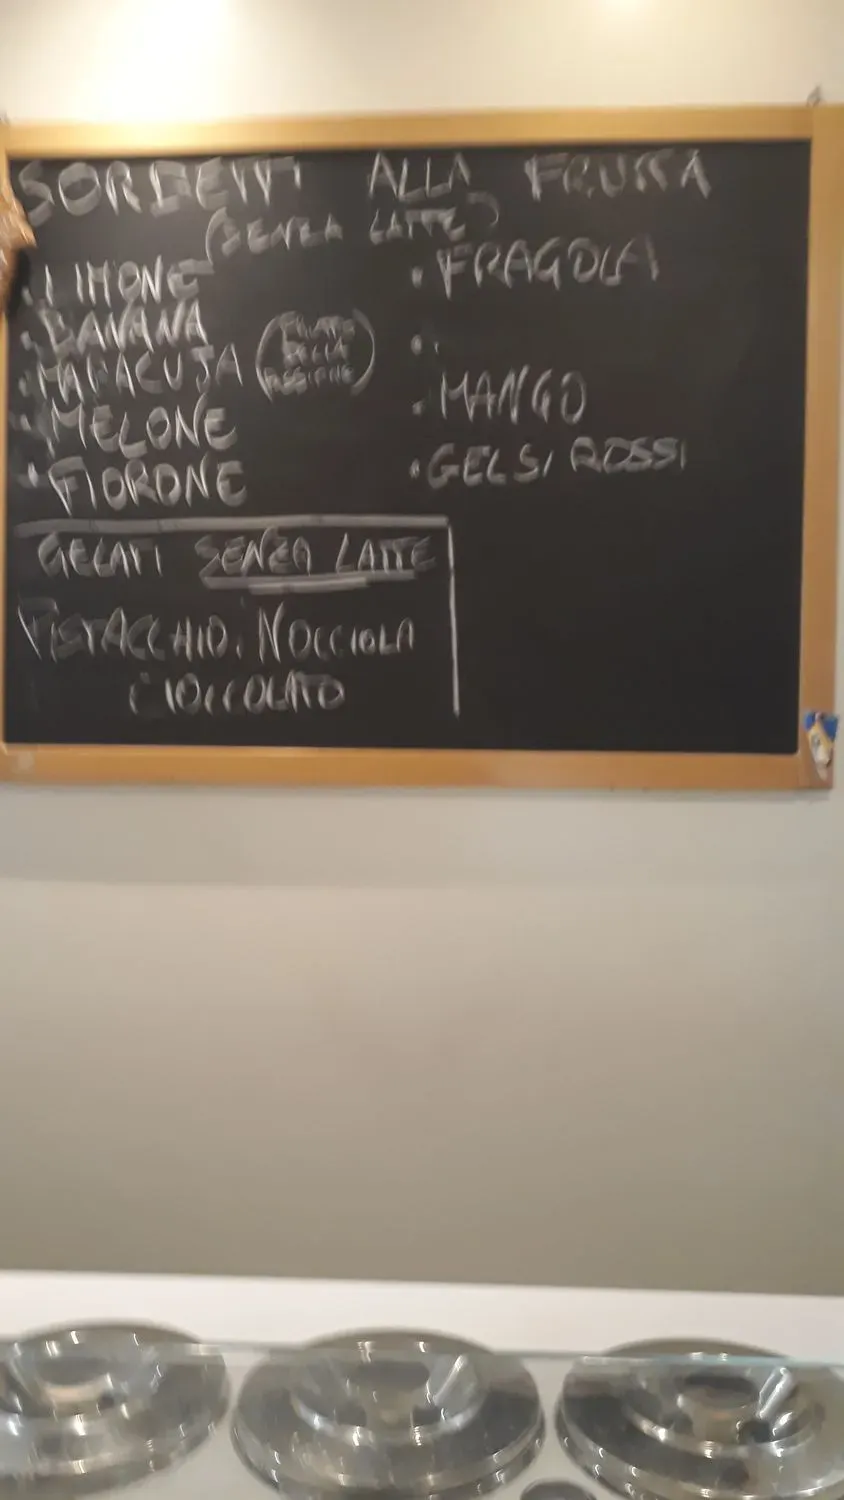 SORBETTI ALLA FRUTTA
(SENZA LATTE)
• LIMONE
• BANANA
• MARACUJA (FRUTTO DELLA PASSIONE)
• MELONE
• FIORONE
• FRAGOLA
•
• MANGO
• GELSI ROSSI
GELATI SENZA LATTE
PISTACCHIO, NOCCIOLA
CIOCCOLATO